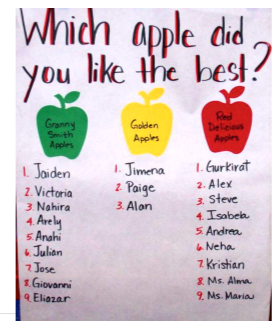 Which apple did
you like the best?
Granny
Smith
Apples
1. Jaiden
2. Victoria
3. Nahira
4. Arely
5. Anahi
6. Julian
7. Jose
8. Giovanni
9. Eliazar
Golden
Apples
1. Jimena
2. Paige
3. Alan
Red
Delicious
Apples
1. Gurkirat
2. Alex
3. Steve
4. Isabela
5. Andrea
6. Neha
7. Kristian
8. Ms. Alma
9. Ms. Maria